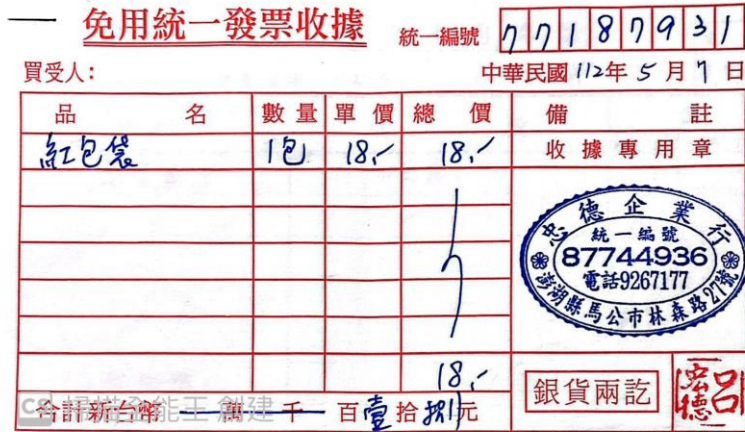 免用統一發票收據 統一編號 77187931
買受人: 中華民國112年5月7日
品名 數量 單價 總價 備註
紅包袋 1包 18,- 18,- 收據專用章
忠德企業行
統一編號
87744936
電話9267177
澎湖縣馬公市林森路27號
18,-
合計新台幣 萬 千 百壹拾捌元 銀貨兩訖
CS 掃描全能王 創建